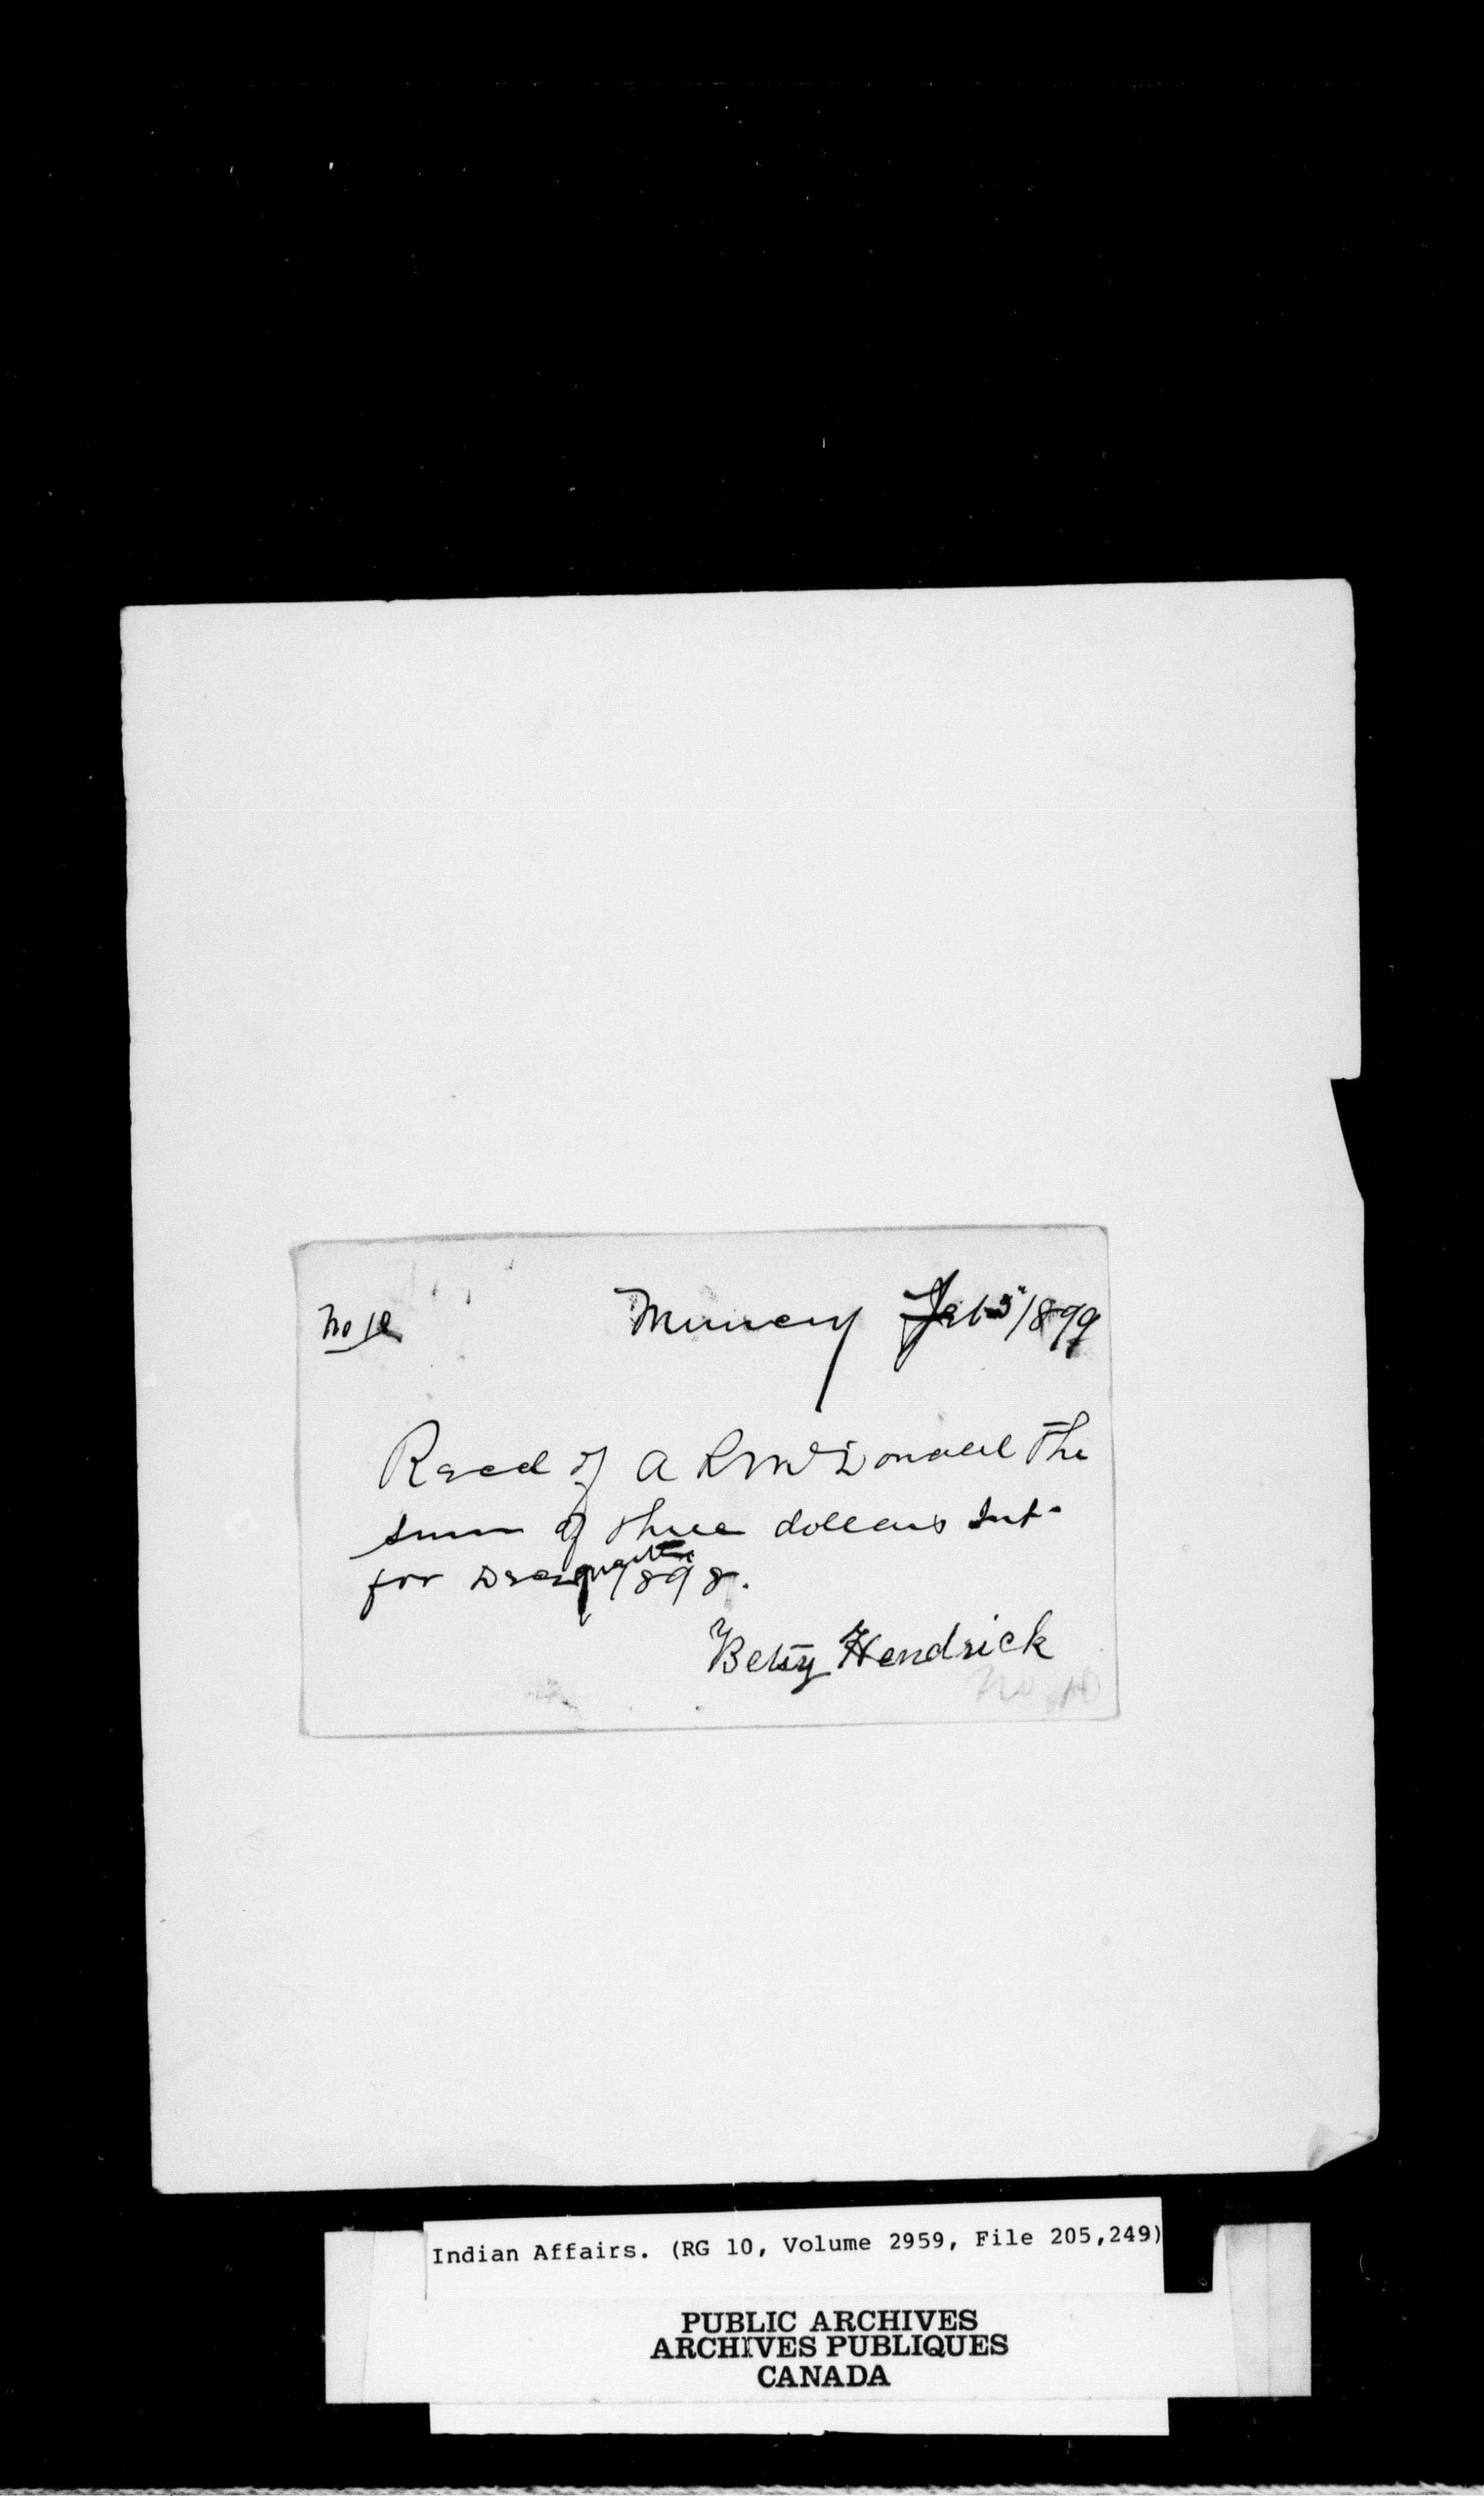 No 10
Muncey Feb 5" 1899
Recd of A R McDonald The
sum of three dollars Int.
for Dec quarter 1898.
Betsy Hendrick
No 10
Indian Affairs. (RG 10, Volume 2959, File 205,249)
PUBLIC ARCHIVES
ARCHIVES PUBLIQUES
CANADA